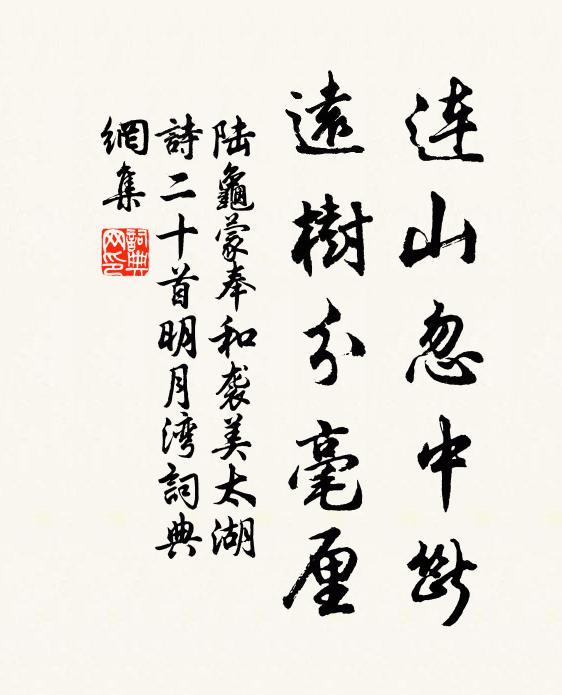 連山忽中斷
遠樹分毫厘
陆龜蒙奉和袭美太湖
詩二十首明月湾詞典
網集
詞典
网印